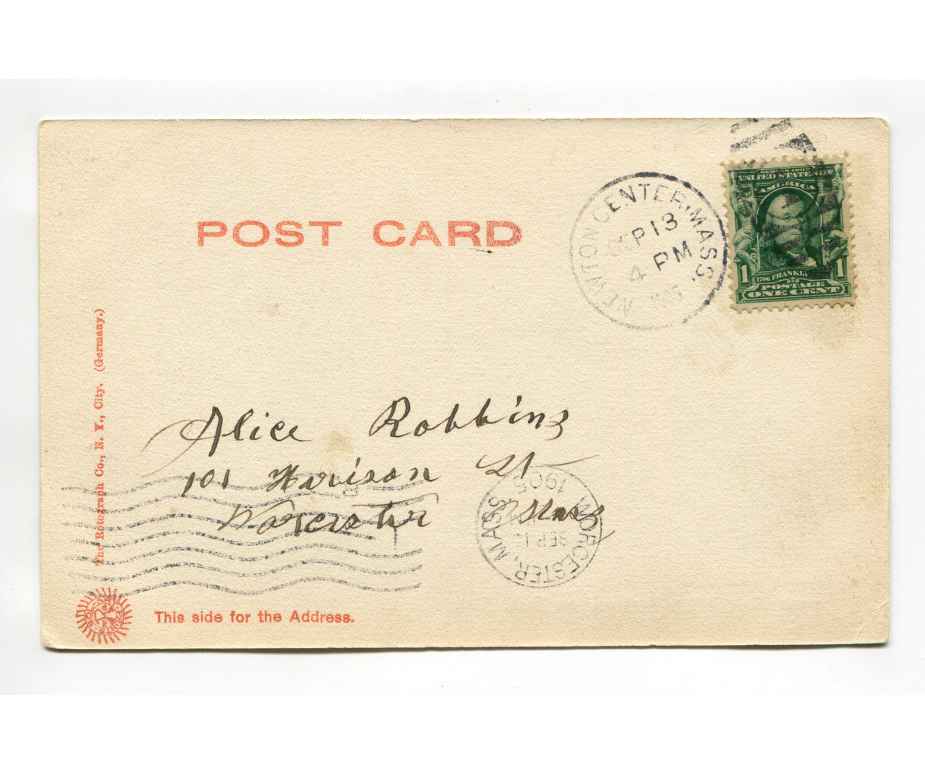 POST CARD
NEWTON CENTER, MASS.
SEP 13
4 PM
1905
UNITED STATES OF
AMERICA
1 FRANKLIN 1
POSTAGE
ONE CENT
The Rotograph Co., N. Y., City. (Germany.)
Alice Robbins
101 St
Worcester Mass
WORCESTER, MASS
SEP
1905
This side for the Address.